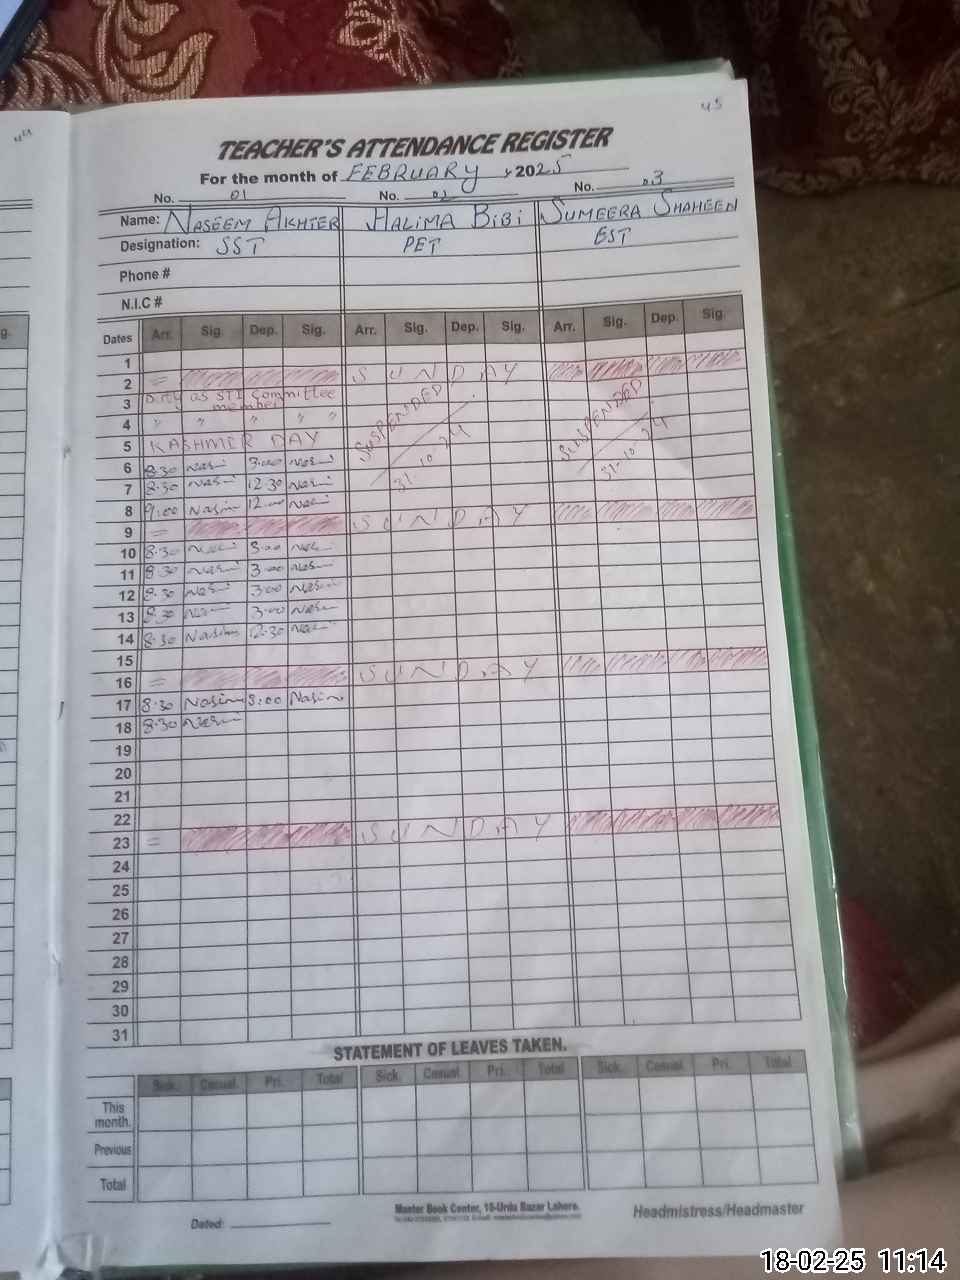 45
TEACHER'S ATTENDANCE REGISTER
For the month of FEBRUARY, 2025
No. 01 No. 02 No. 03
Name: NASEEM AKHTER HALIMA BIBI SUMEERA SHAHEEN
Designation: SST PET EST
Phone #
N.I.C #
Dates Arr. Sig. Dep. Sig. Arr. Sig. Dep. Sig. Arr. Sig. Dep. Sig.
1
2 = SUNDAY
3 Duty as STI Committee member SUSPENDED 31-10-24 SUSPENDED 31-10-24
4 " " " " "
5 KASHMIR DAY
6 8:30 3:00
7 8:30 12:30
8 9:00 Nasim 12:00
9 = SUNDAY
10 8:30 3:00
11 8:30 3:00
12 8:30 3:00
13 8:30 3:00
14 8:30 Nasim 12:30
15
16 = SUNDAY
17 8:30 Nasim 3:00 Nasim
18 8:30
19
20
21
22
23 = SUNDAY
24
25
26
27
28
29
30
31
STATEMENT OF LEAVES TAKEN.
Sick. Casual. Pri. Total Sick. Casual. Pri. Total Sick. Casual. Pri. Total
This month.
Previous
Total
Dated:
Master Book Center, 15-Urdu Bazar Lahore.
Headmistress/Headmaster
18-02-25 11:14